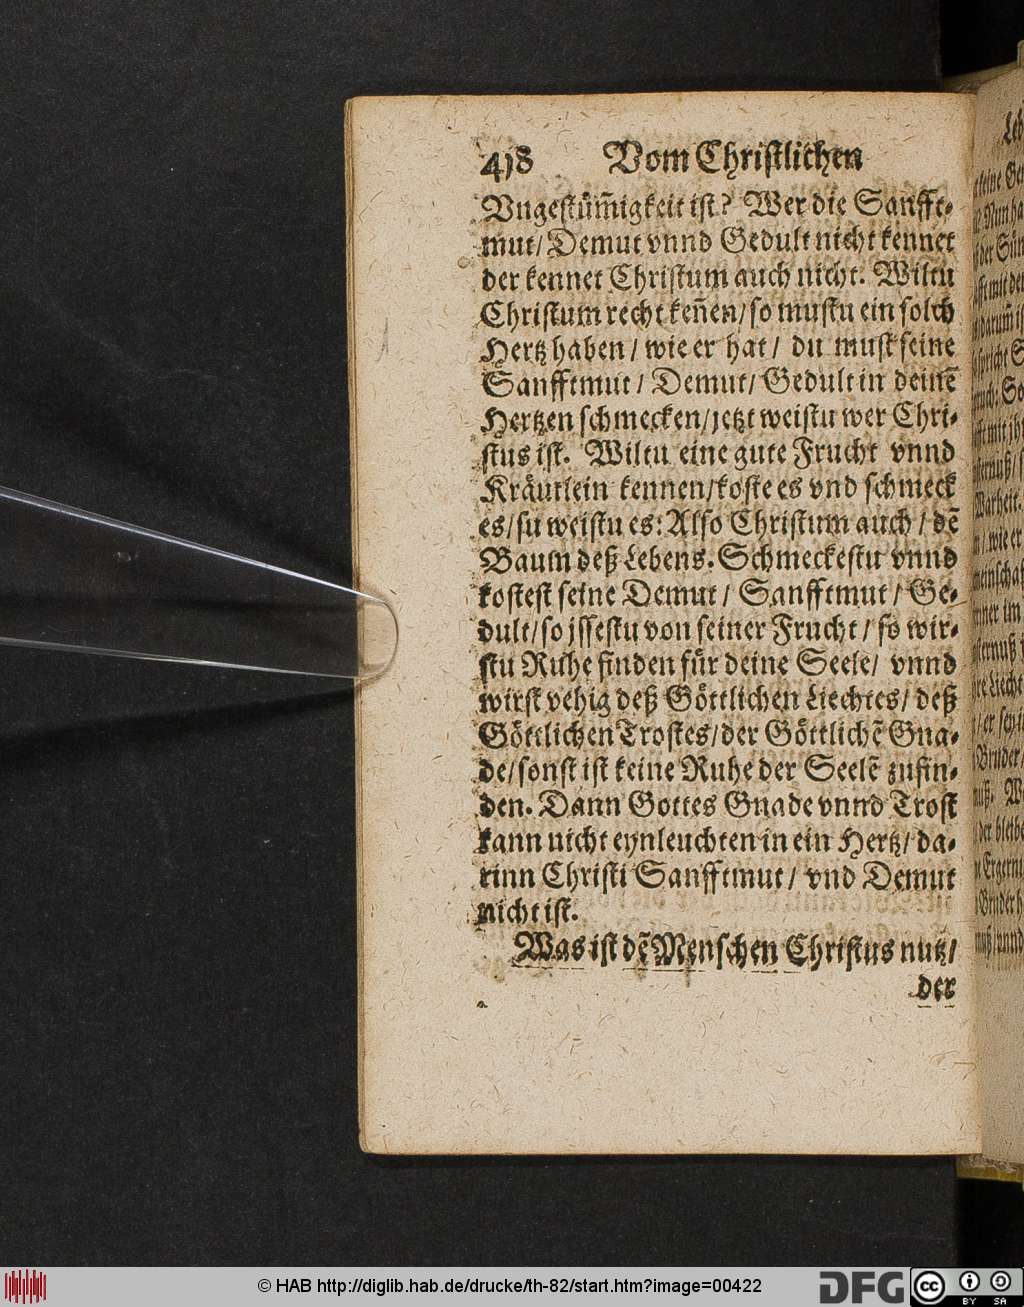 418 Vom Christlichen
Vngestüm̃igkeit ist? Wer die Sanfft-
mut/ Demut vnnd Gedult nicht kennet
der kennet Christum auch nicht. Wiltu
Christum recht keñen/ so mustu ein solch
Hertz haben/ wie er hat/ du must seine
Sanfftmut/ Demut/ Gedult in deinẽ
Hertzen schmecken/ jetzt weistu wer Chri-
stus ist. Wiltu eine gute Frucht vnnd
Kräutlein kennen/ koste es vnd schmeck
es/ su weistu es: Also Christum auch/ dẽ
Baum deß Lebens. Schmeckestu vnnd
kostest seine Demut/ Sanfftmut/ Ge-
dult/ so jssestu von seiner Frucht/ so wir-
stu Ruhe finden für deine Seele/ vnnd
wirst vehig deß Göttlichen Liechtes/ deß
Göttlichen Trostes/ der Göttlichẽ Gna-
de/ sonst ist keine Ruhe der Seelẽ zufin-
den. Dann Gottes Gnade vnnd Trost
kann nicht eynleuchten in ein Hertz/ da-
rinn Christi Sanfftmut/ vnd Demut
nicht ist.
Was ist dẽ Menschen Christus nutz/
der
© HAB http://diglib.hab.de/drucke/th-82/start.htm?image=00422
DFG
cc
BY SA